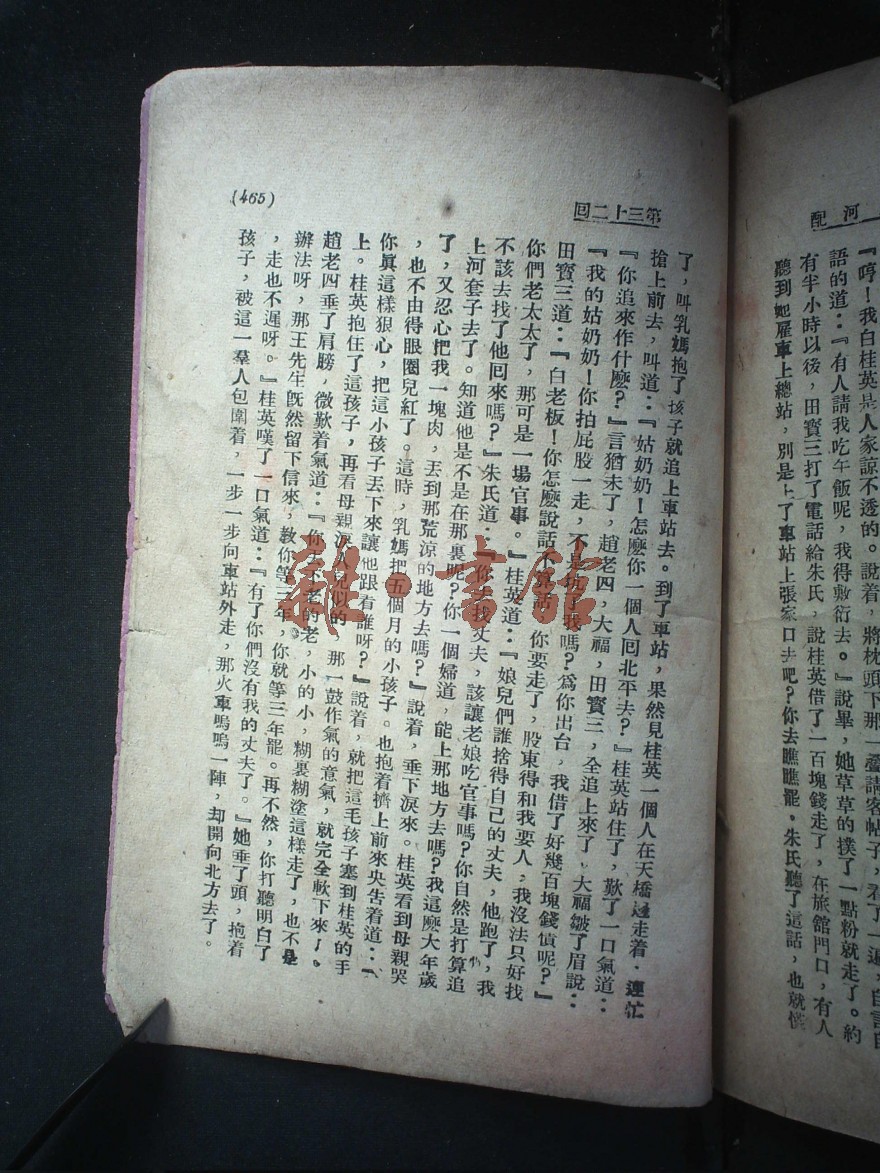 河配
『哼！我白桂英是人家諒不透的。說着，將枕頭下那一疊請客帖子，看了一遍，自言自
語的道：『有人請我吃午飯呢，我得敷衍去。』說畢，她草草的撲了一點粉就走了。約
有半小時以後，田寶三打了電話給朱氏，說桂英借了一百塊錢走了，在旅館門口，有人
聽到她雇車上總站，別是上了車站上張家口去吧？你去瞧瞧罷。朱氏聽了這話，也就慌
第三十二回
了，叫乳媽抱了孩子就追上車站去。到了車站，果然見桂英一個人在天橋邊走着．連忙
搶上前去，叫道：『姑奶奶！怎麼你一個人回北平去？』桂英站住了，歎了一口氣道：
『你追來作什麼？』言猶未了，趙老四，大福，田寶三，全追上來了，大福皺了眉說：
『我的姑奶奶！你拍屁股一走，不是坑了我嗎？爲你出台，我借了好幾百塊錢債呢？』
田寶三道：『白老板！你怎麼說話不算話，你要走了，股東得和我要人，我沒法只好找
你們老太太了，那可是一場官事。』桂英道：『娘兒們誰捨得自己的丈夫，他跑了，我
不該去找了他回來嗎？』朱氏道：『你去找丈夫，該讓老娘吃官事嗎？你自然是打算追
上河套子去了。知道他是不是在那裏呢？你一個婦道，能上那地方去嗎？我這麼大年歲
了，又忍心把我一塊肉，丟到那荒涼的地方去嗎？』說着，垂下淚來。桂英看到母親哭
，也不由得眼圈兒紅了。這時，乳媽把五個月的小孩子。也抱着擠上前來央告着道：『
你眞這樣狠心，把這小孩子丟下來讓他跟着誰呀？』說着，就把這毛孩子塞到桂英的手
上。桂英抱住了這孩子，再看母親淚人兒似的 那一鼓作氣的意氣，就完全軟下來了。
趙老四垂了肩膀，微歎着氣道：『你手不老的老，小的小，糊裏糊塗這樣走了，也不是
辦法呀，那王先生旣然留下信來，教你等三年，你就等三年罷。再不然，你打聽明白了
，走也不遲呀。』桂英嘆了一口氣道：『有了你們沒有我的丈夫了。』她垂了頭，抱着
孩子，被這一羣人包圍着，一步一步向車站外走，那火車嗚嗚一陣，却開向北方去了。
(465)
雜·書館